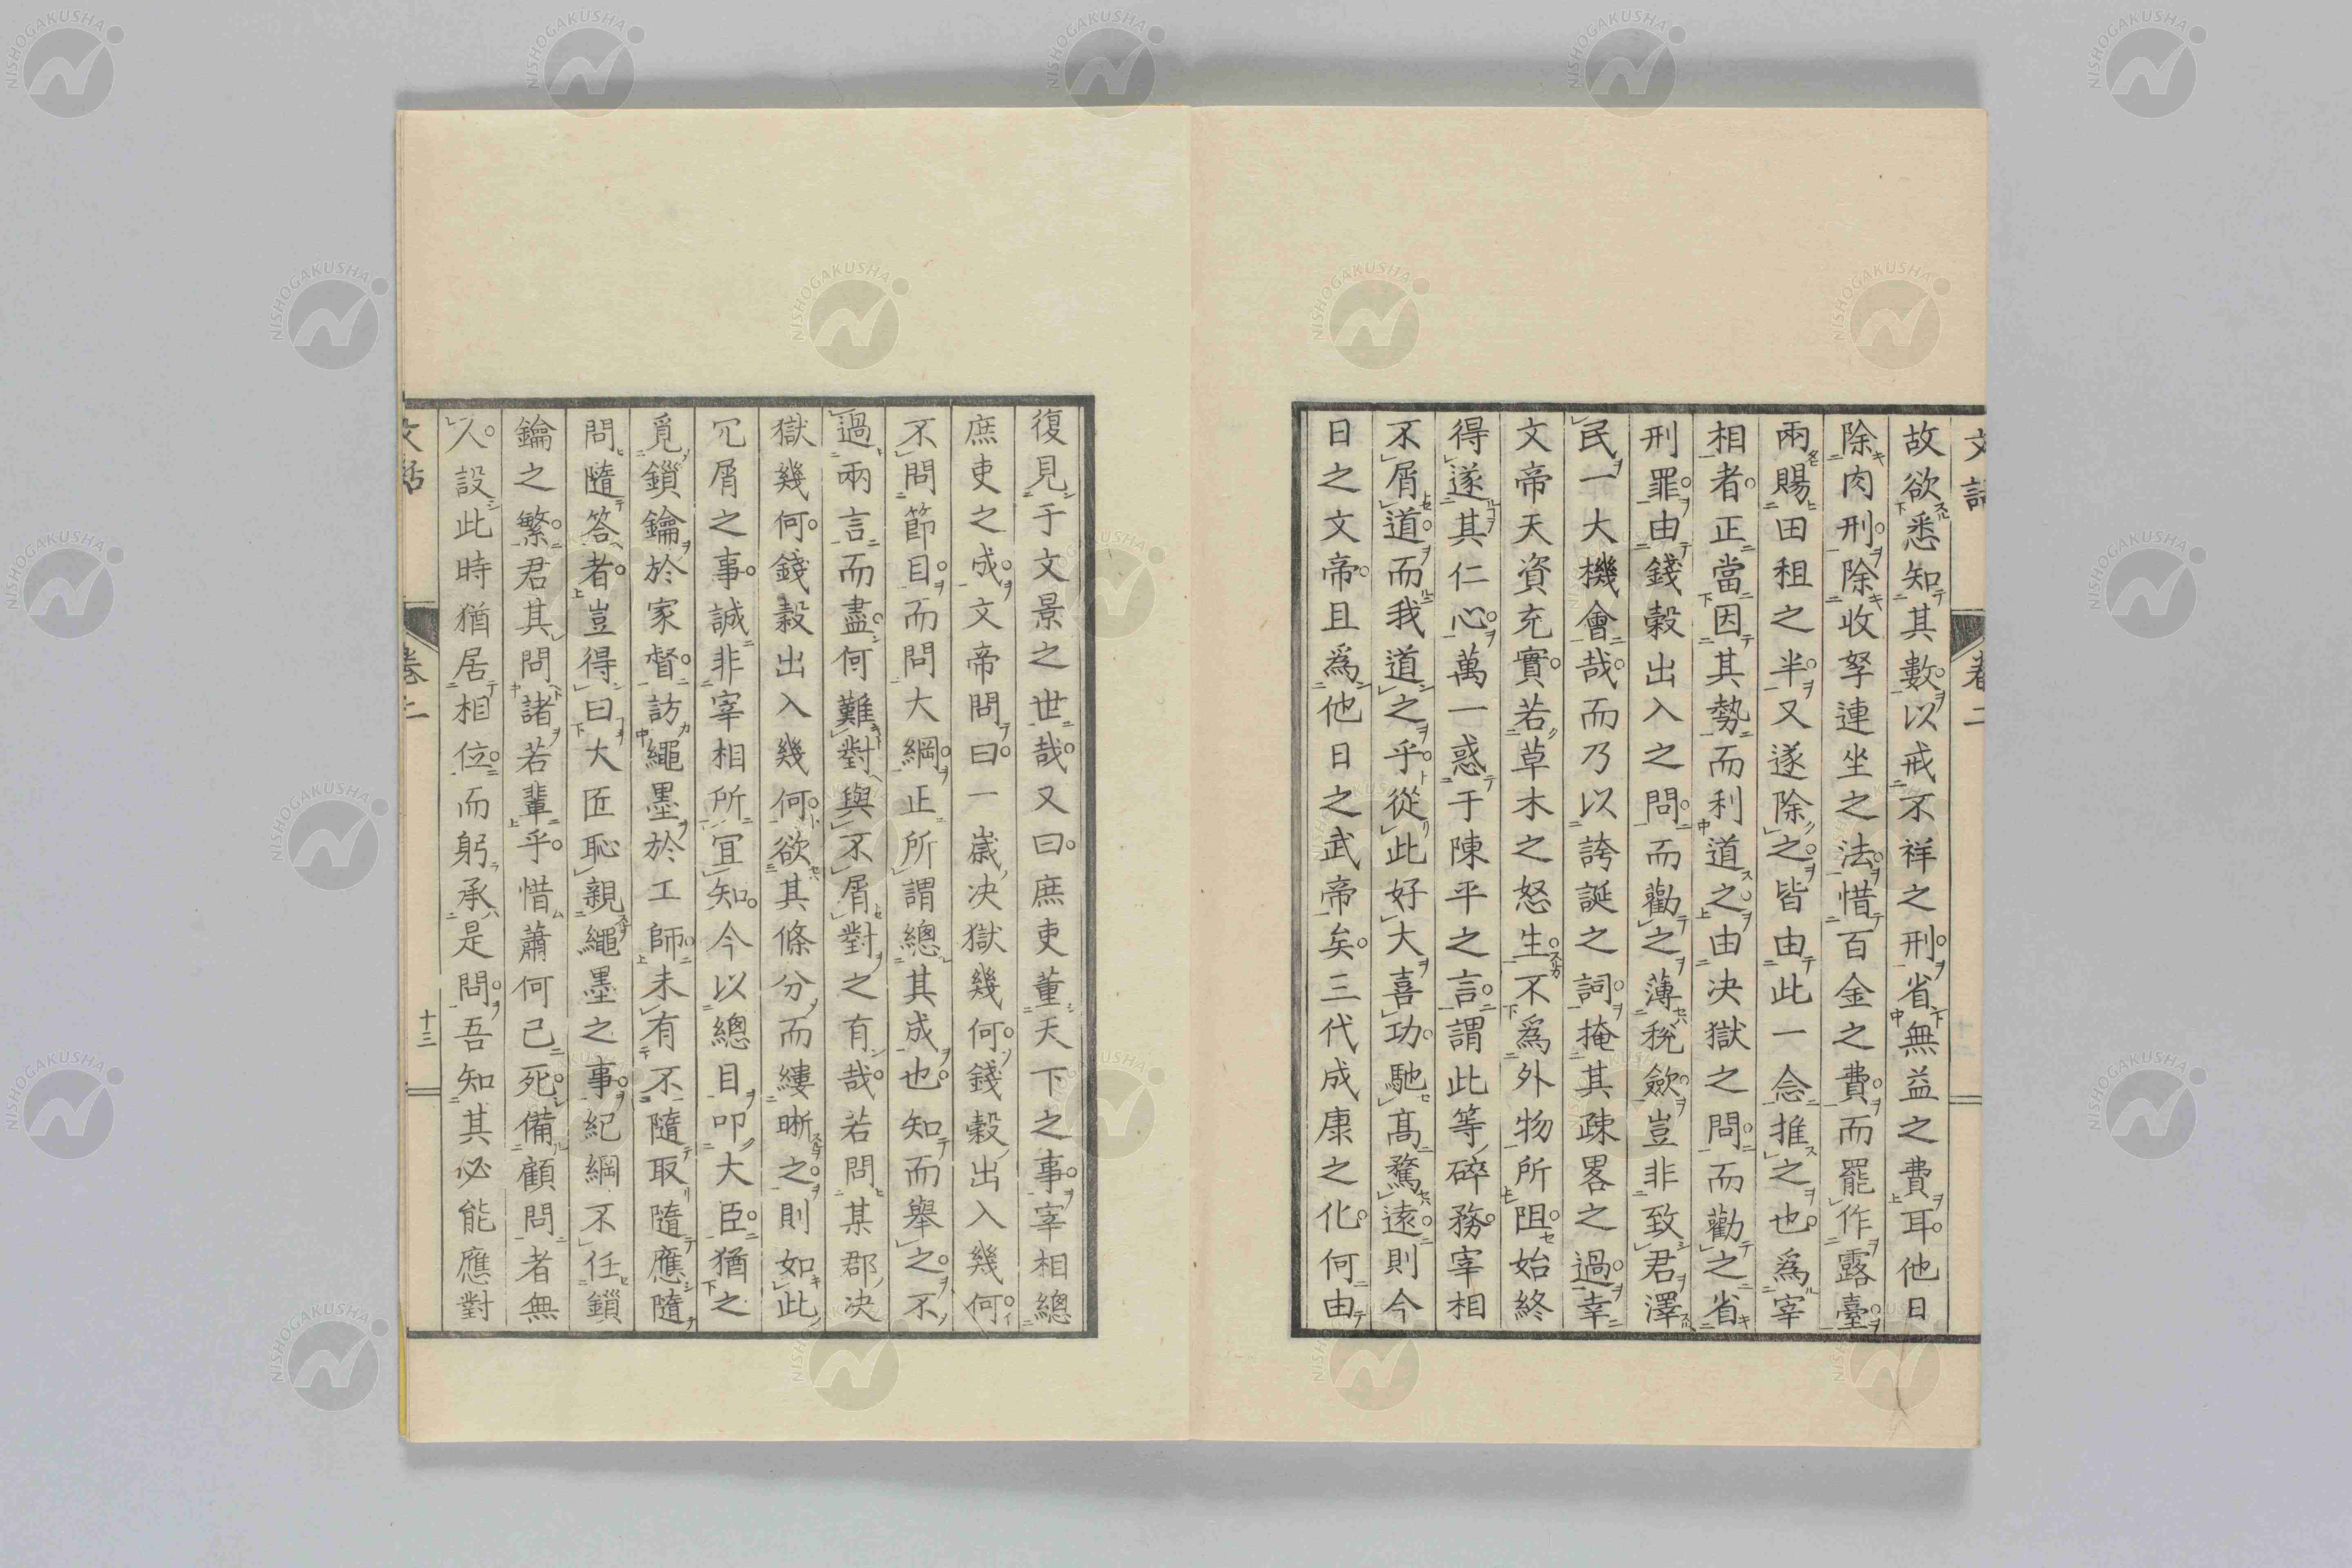 故欲悉知其數以戒不祥之刑省無益之費耳他日
除肉刑除收孥連坐之法惜百金之費而罷作露臺
兩賜田租之半又遂除之皆由此一念推之也爲宰
相者正當因其勢而利道之由决獄之問而勸之省
刑罪由錢穀出入之問而勸之薄稅斂豈非致君澤
民一大機會哉而乃以誇誕之詞掩其疎畧之過幸
文帝天資充實若草木之怒生不爲外物所阻始終
得遂其仁心萬一惑于陳平之言謂此等碎務宰相
不屑道而我道之乎從此好大喜功馳高騖遠則今
日之文帝且爲他日之武帝矣三代成康之化何由
復見于文景之世哉又曰庶吏董天下之事宰相總
庶吏之成文帝問曰一歲决獄幾何錢穀出入幾何
不問節目而問大綱正所謂總其成也知而舉之不
過兩言而盡何難對與不屑對之有哉若問某郡决
獄幾何錢穀出入幾何欲其條分而縷晰之則如此
冗屑之事誠非宰相所宜知今以總目叩大臣猶之
覓鎖鑰於家督訪繩墨於工師未有不隨取隨應隨
問隨答者豈得曰大匠恥親繩墨之事紀綱不任鎖
鑰之繁君其問諸若輩乎惜蕭何已死備顧問者無
人設此時猶居相位而躬承是問吾知其必能應對
文話
卷二
十三
NISHOGAKUSHA